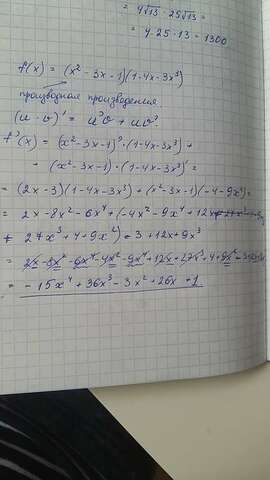 = 4√13 · 25√13 =
= 4·25·13 = 1300
f(x) = (x² - 3x - 1)(1 - 4x - 3x³)
производная произведения
(u · v)' = u'v + uv'
f'(x) = (x² - 3x - 1)' · (1 - 4x - 3x³) +
+ (x² - 3x - 1) · (1 - 4x - 3x³)' =
= (2x - 3)(1 - 4x - 3x³) + (x² - 3x - 1)(-4 - 9x²) =
= 2x - 8x² - 6x⁴ + (-4x² - 9x⁴ + 12x
+ 27x³ + 4 + 9x²) - 3 + 12x + 9x³
= 2x - 8x² - 6x⁴ - 4x² - 9x⁴ + 12x + 27x³ + 4 + 9x²
= -15x⁴ + 36x³ - 3x² + 26x + 1